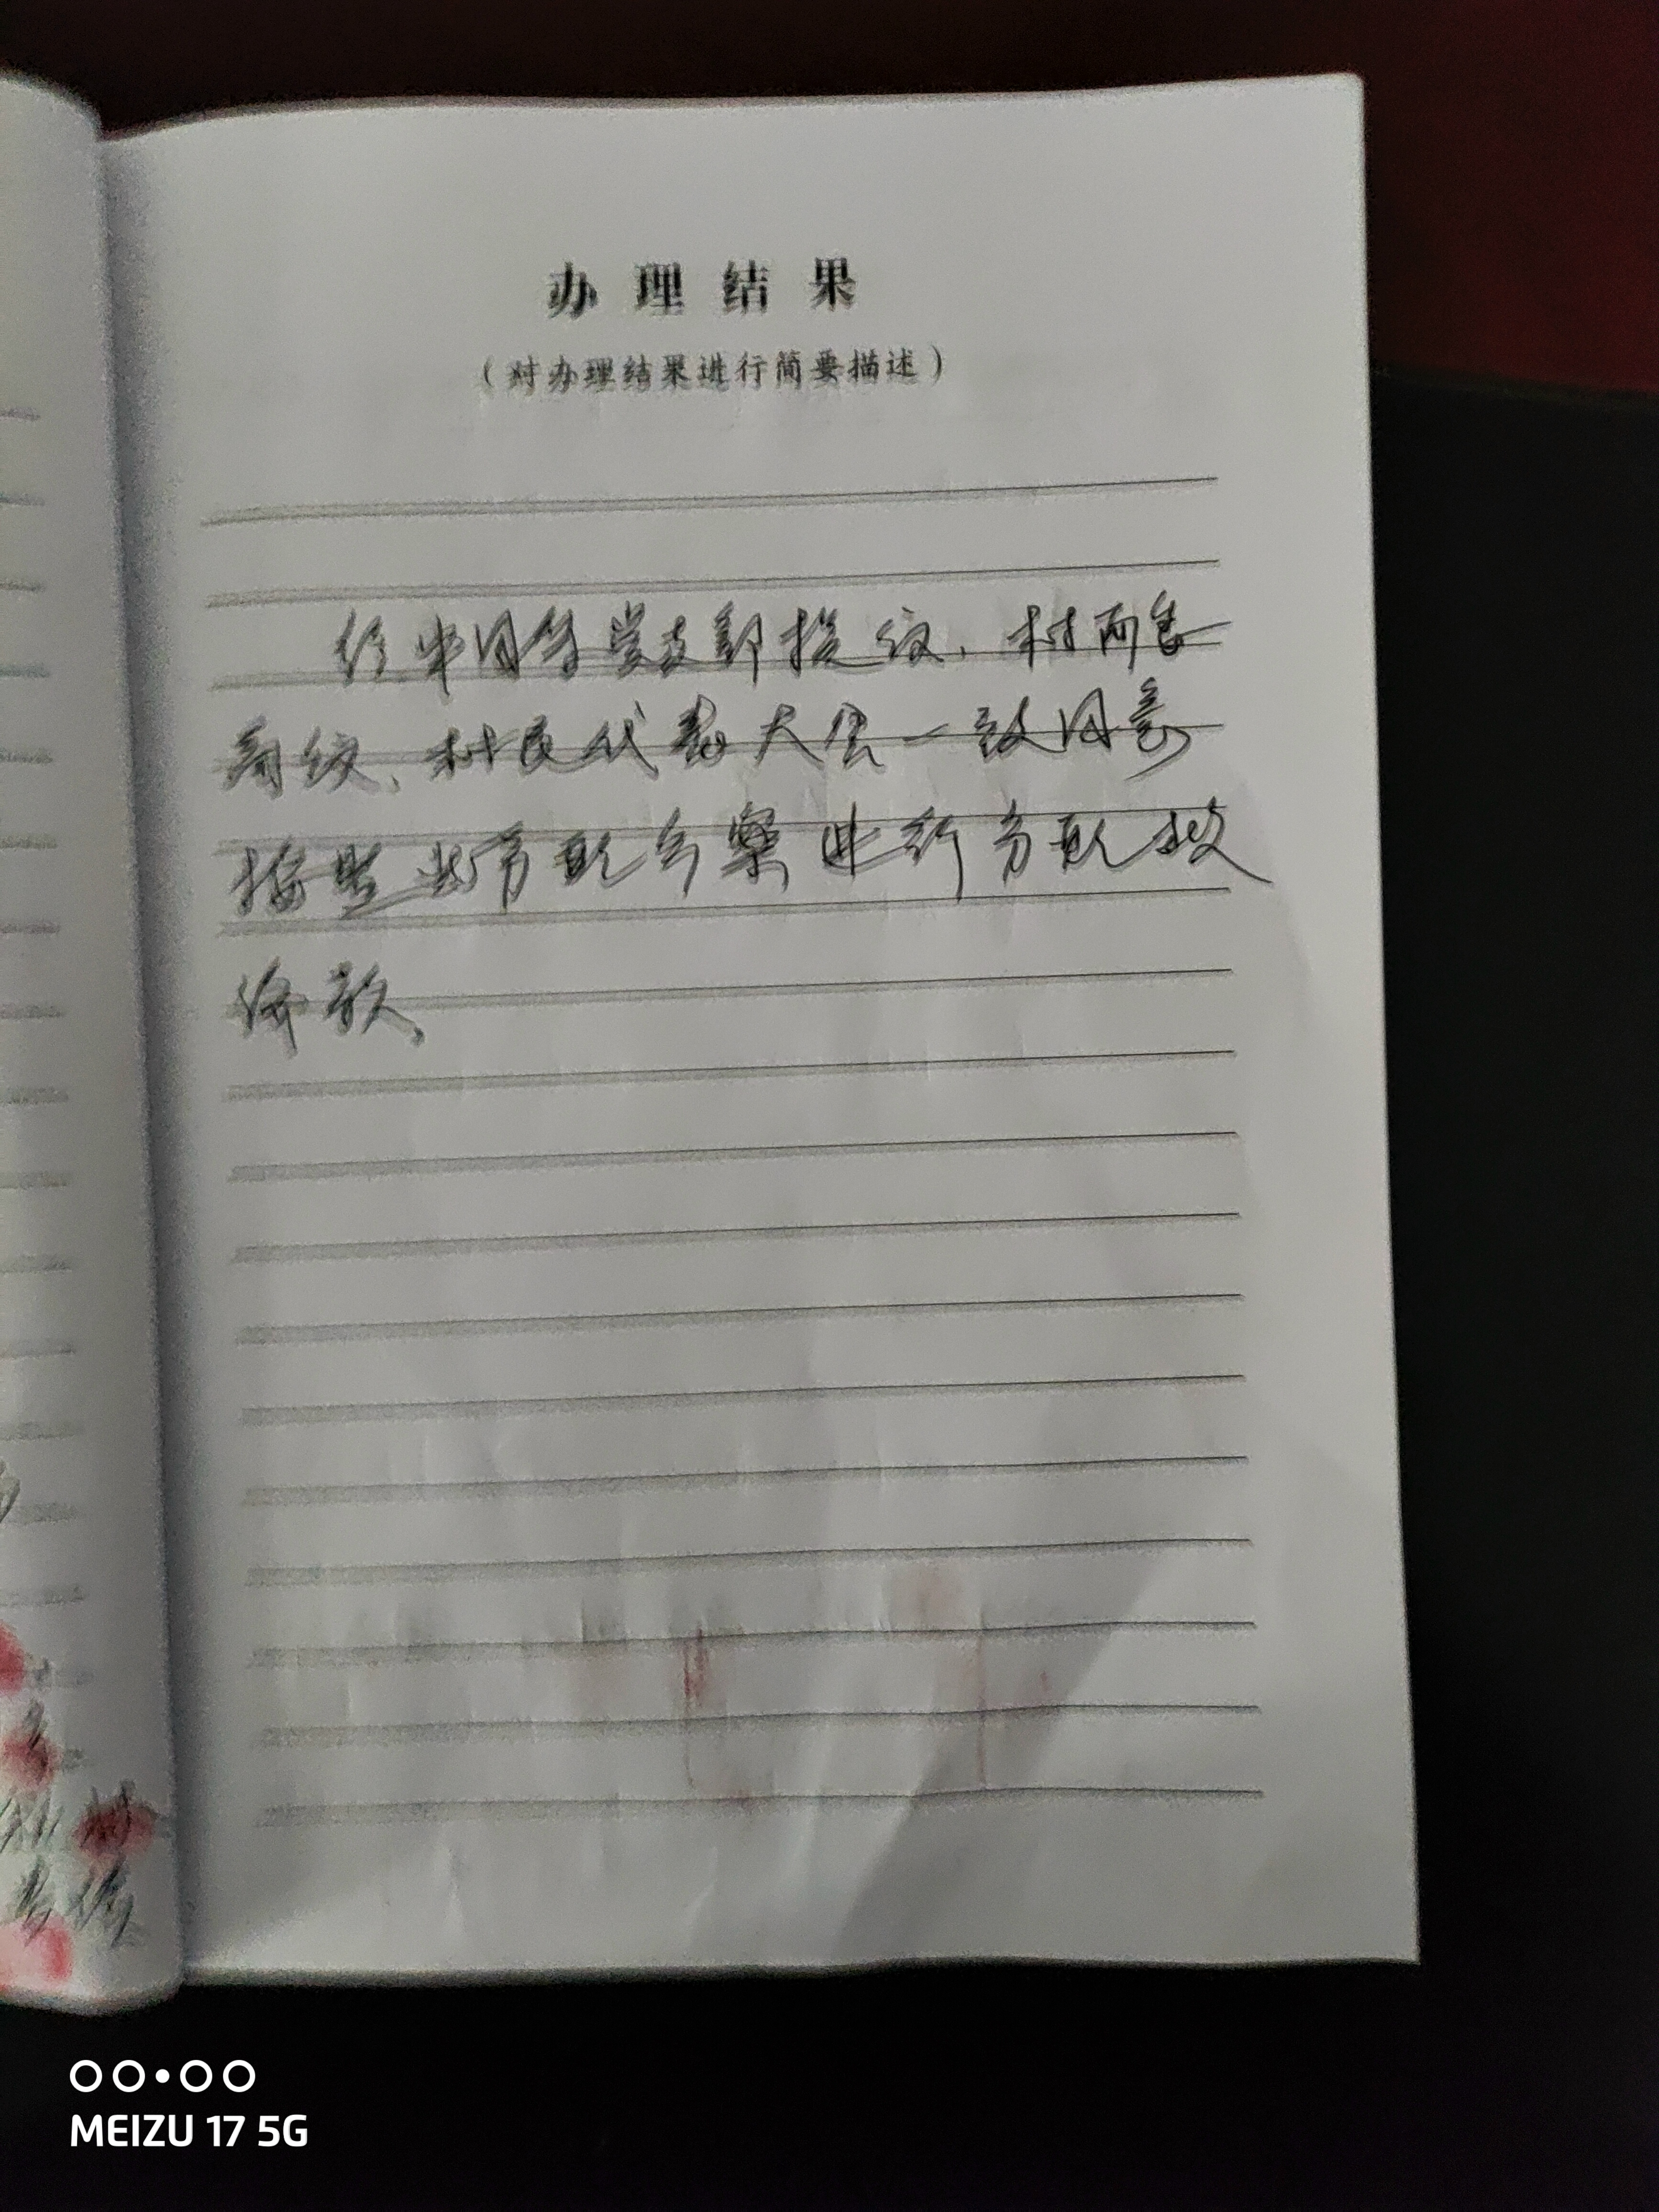 办理结果
(对办理结果进行简要描述)
经 党支部提议、村两委
商议、村民代表大会一致同意
按照此分配方案进行分配救
济款。
MEIZU 17 5G